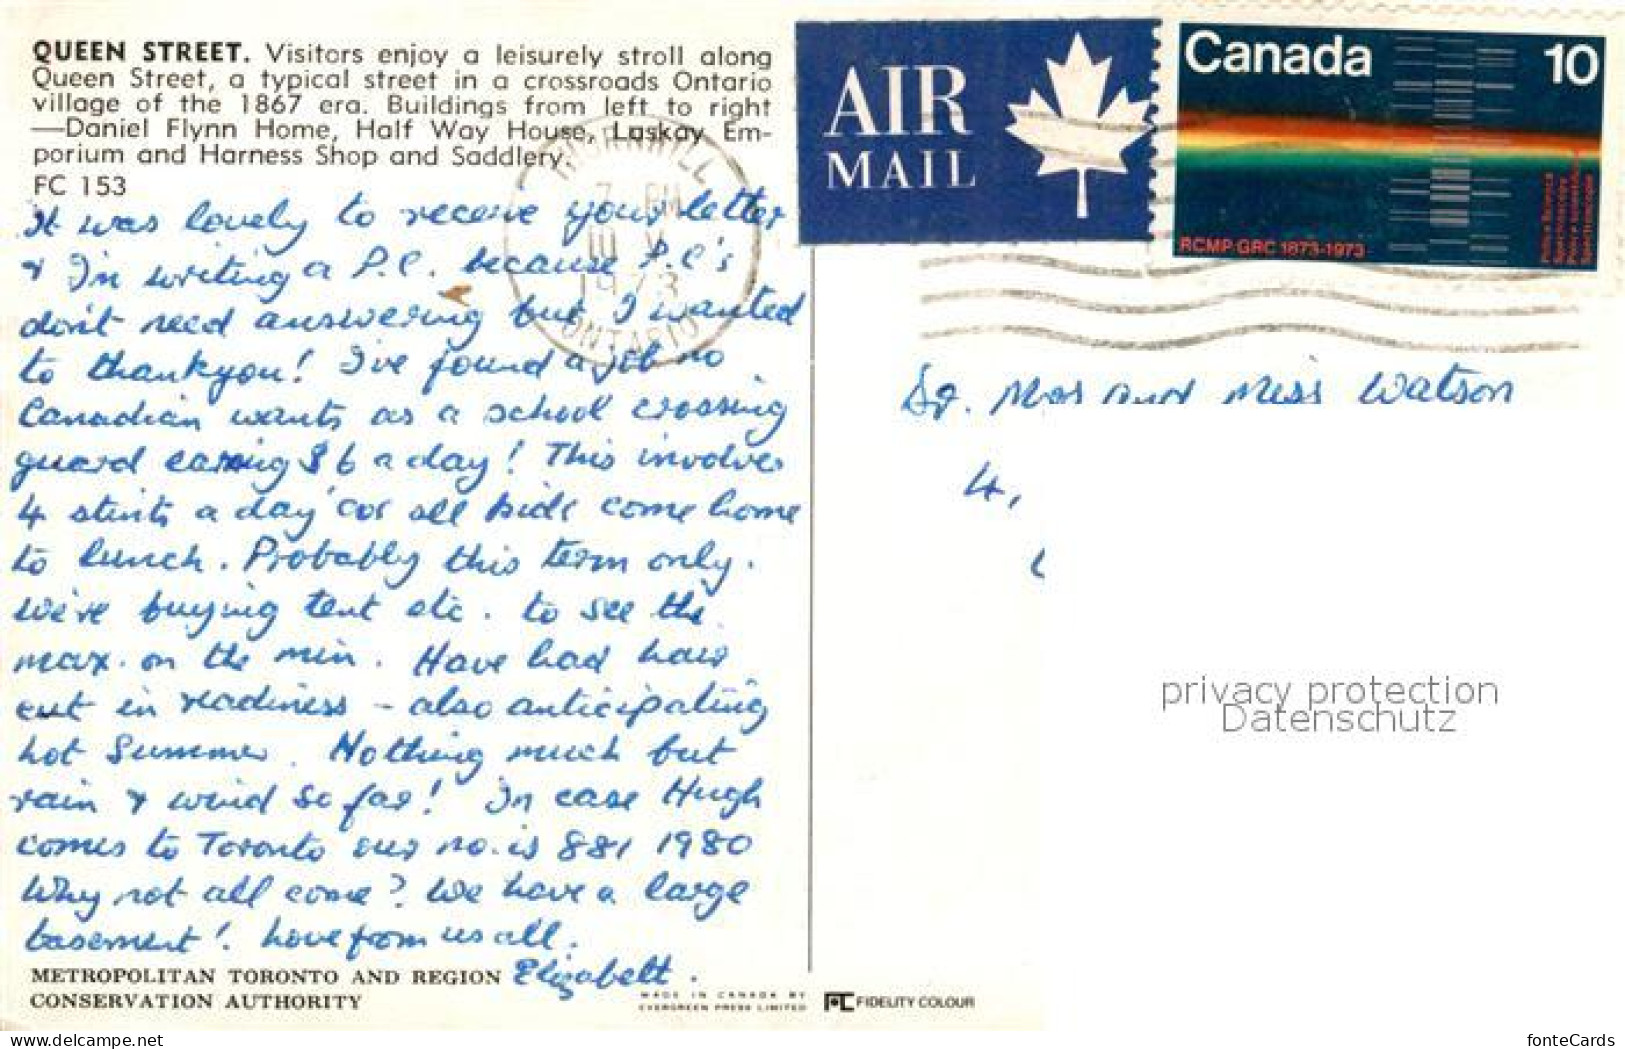 QUEEN STREET. Visitors enjoy a leisurely stroll along
Queen Street, a typical street in a crossroads Ontario
village of the 1867 era. Buildings from left to right
—Daniel Flynn Home, Half Way House, Laskay Em-
porium and Harness Shop and Saddlery.
FC 153
It was lovely to receive your letter
& I'm writing a P.C. because P.C's
don't need answering but I wanted
to thankyou! I've found a job no
Canadian wants as a school crossing
guard earning $6 a day! This involves
4 stints a day 'cos all kids come home
to lunch. Probably this term only.
We're buying tent etc. to see the
max. on the min. Have had hair
cut in readiness - also anticipating
hot Summer. Nothing much but
rain & wind so far! In case Hugh
comes to Toronto our no. is 881 1980
Why not all come? We have a large
basement! Love from us all.
Elizabeth.
METROPOLITAN TORONTO AND REGION
CONSERVATION AUTHORITY
MADE IN CANADA BY
EVERGREEN PRESS LIMITED
FIDELITY COLOUR
AIR
MAIL
Canada 10
RCMP GRC 1873-1973
PM
1973
ONTARIO
Mrs and Miss Watson
4,
privacy protection
Datenschutz
www.delcampe.net
fonteCards